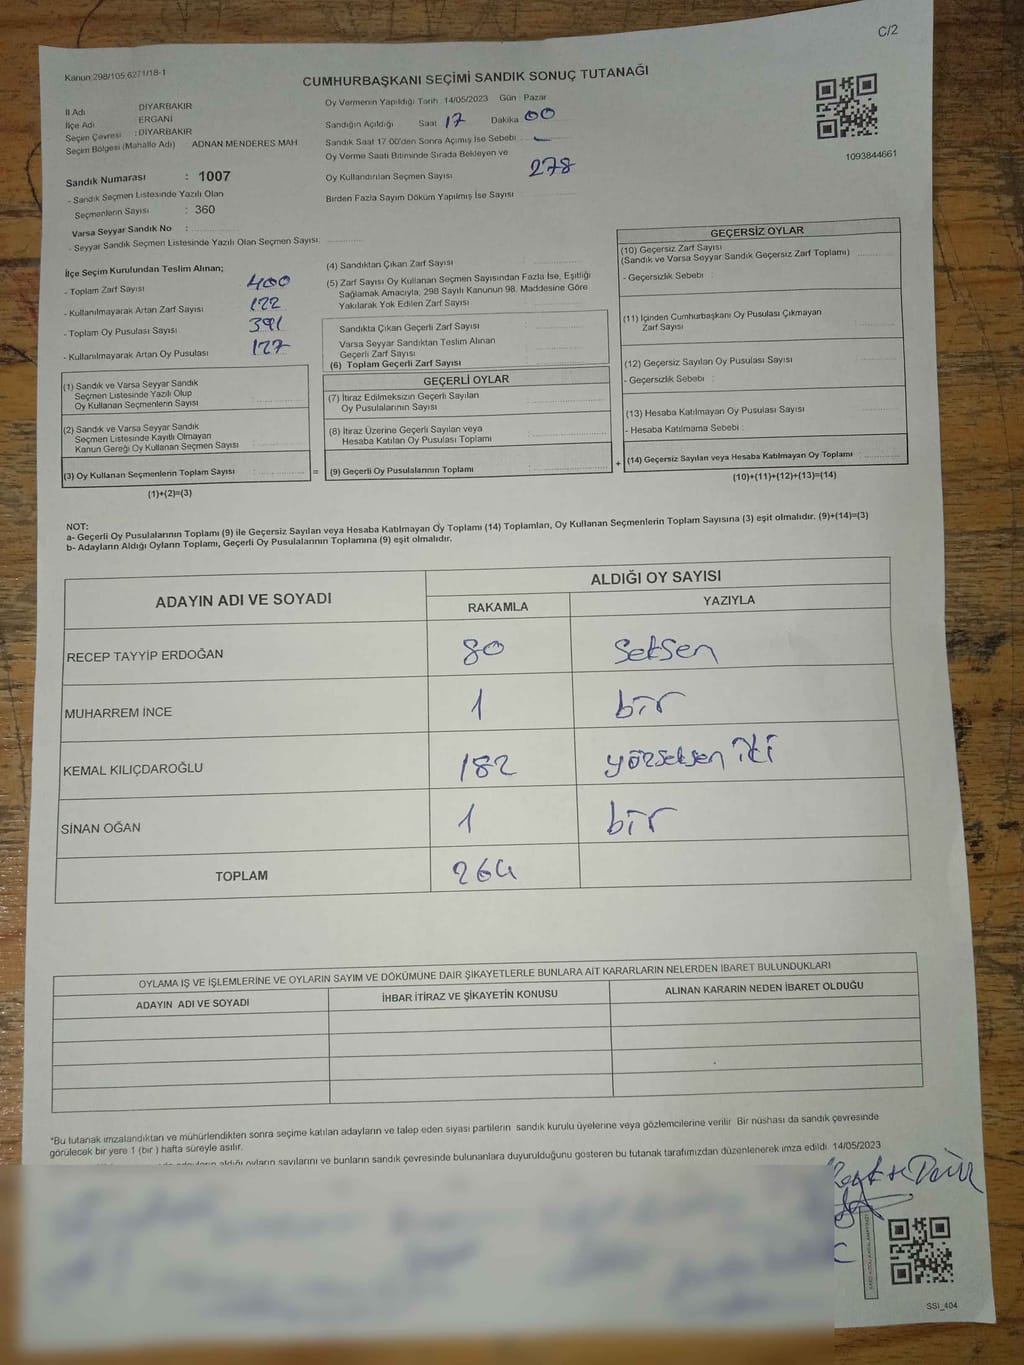 C/2
Kanun:298/105,6271/18-1
CUMHURBAŞKANI SEÇİMİ SANDIK SONUÇ TUTANAĞI
İl Adı DİYARBAKIR
İlçe Adı ERGANİ
Seçim Çevresi : DİYARBAKIR
Seçim Bölgesi (Mahalle Adı) ADNAN MENDERES MAH
Oy Vermenin Yapıldığı Tarih : 14/05/2023 Gün : Pazar
Sandığın Açıldığı Saat 17 Dakika 00
Sandık Saat 17.00'den Sonra Açımış İse Sebebi
Oy Verme Saati Bitiminde Sırada Bekleyen ve
Oy Kullandırılan Seçmen Sayısı 278
Birden Fazla Sayım Döküm Yapılmış İse Sayısı
1093844661
Sandık Numarası : 1007
- Sandık Seçmen Listesinde Yazılı Olan
Seçmenlerin Sayısı : 360
Varsa Seyyar Sandık No :
- Seyyar Sandık Seçmen Listesinde Yazılı Olan Seçmen Sayısı:
İlçe Seçim Kurulundan Teslim Alınan;
- Toplam Zarf Sayısı 400
- Kullanılmayarak Artan Zarf Sayısı 122
- Toplam Oy Pusulası Sayısı 391
- Kullanılmayarak Artan Oy Pusulası 127
(1) Sandık ve Varsa Seyyar Sandık
Seçmen Listesinde Yazılı Olup
Oy Kullanan Seçmenlerin Sayısı :
(2) Sandık ve Varsa Seyyar Sandık
Seçmen Listesinde Kayıtlı Olmayan
Kanun Gereği Oy Kullanan Seçmen Sayısı :
(3) Oy Kullanan Seçmenlerin Toplam Sayısı :
(1)+(2)=(3)
=
(4) Sandıktan Çıkan Zarf Sayısı :
(5) Zarf Sayısı Oy Kullanan Seçmen Sayısından Fazla İse, Eşitliği
Sağlamak Amacıyla, 298 Sayılı Kanunun 98. Maddesine Göre
Yakılarak Yok Edilen Zarf Sayısı :
Sandıkta Çıkan Geçerli Zarf Sayısı :
Varsa Seyyar Sandıktan Teslim Alınan
Geçerli Zarf Sayısı :
(6) Toplam Geçerli Zarf Sayısı :
GEÇERLİ OYLAR
(7) İtiraz Edilmeksizin Geçerli Sayılan
Oy Pusulalarının Sayısı :
(8) İtiraz Üzerine Geçerli Sayılan veya
Hesaba Katılan Oy Pusulası Toplamı :
(9) Geçerli Oy Pusulalarının Toplamı :
+
GEÇERSİZ OYLAR
(10) Geçersiz Zarf Sayısı
(Sandık ve Varsa Seyyar Sandık Geçersiz Zarf Toplamı) :
- Geçersizlik Sebebi :
(11) İçinden Cumhurbaşkanı Oy Pusulası Çıkmayan
Zarf Sayısı :
(12) Geçersiz Sayılan Oy Pusulası Sayısı :
- Geçersizlik Sebebi :
(13) Hesaba Katılmayan Oy Pusulası Sayısı :
- Hesaba Katılmama Sebebi :
(14) Geçersiz Sayılan veya Hesaba Katılmayan Oy Toplamı :
(10)+(11)+(12)+(13)=(14)
NOT:
a- Geçerli Oy Pusulalarının Toplamı (9) ile Geçersiz Sayılan veya Hesaba Katılmayan Oy Toplamı (14) Toplamları, Oy Kullanan Seçmenlerin Toplam Sayısına (3) eşit olmalıdır. (9)+(14)=(3)
b- Adayların Aldığı Oyların Toplamı, Geçerli Oy Pusulalarının Toplamına (9) eşit olmalıdır.
ADAYIN ADI VE SOYADI ALDIĞI OY SAYISI
RAKAMLA YAZIYLA
RECEP TAYYİP ERDOĞAN 80 Seksen
MUHARREM İNCE 1 bir
KEMAL KILIÇDAROĞLU 182 yözseksen iki
SİNAN OĞAN 1 bir
TOPLAM 264
OYLAMA İŞ VE İŞLEMLERİNE VE OYLARIN SAYIM VE DÖKÜMÜNE DAİR ŞİKAYETLERLE BUNLARA AİT KARARLARIN NELERDEN İBARET BULUNDUKLARI
ADAYIN ADI VE SOYADI İHBAR İTİRAZ VE ŞİKAYETİN KONUSU ALINAN KARARIN NEDEN İBARET OLDUĞU
*Bu tutanak imzalandıktan ve mühürlendikten sonra seçime katılan adayların ve talep eden siyasi partilerin sandık kurulu üyelerine veya gözlemcilerine verilir. Bir nüshası da sandık çevresinde
görülecek bir yere 1 (bir ) hafta süreyle asılır.
aldığı oyların sayılarını ve bunların sandık çevresinde bulunanlara duyurulduğunu gösteren bu tutanak tarafımızdan düzenlenerek imza edildi. 14/05/2023
SSI_404